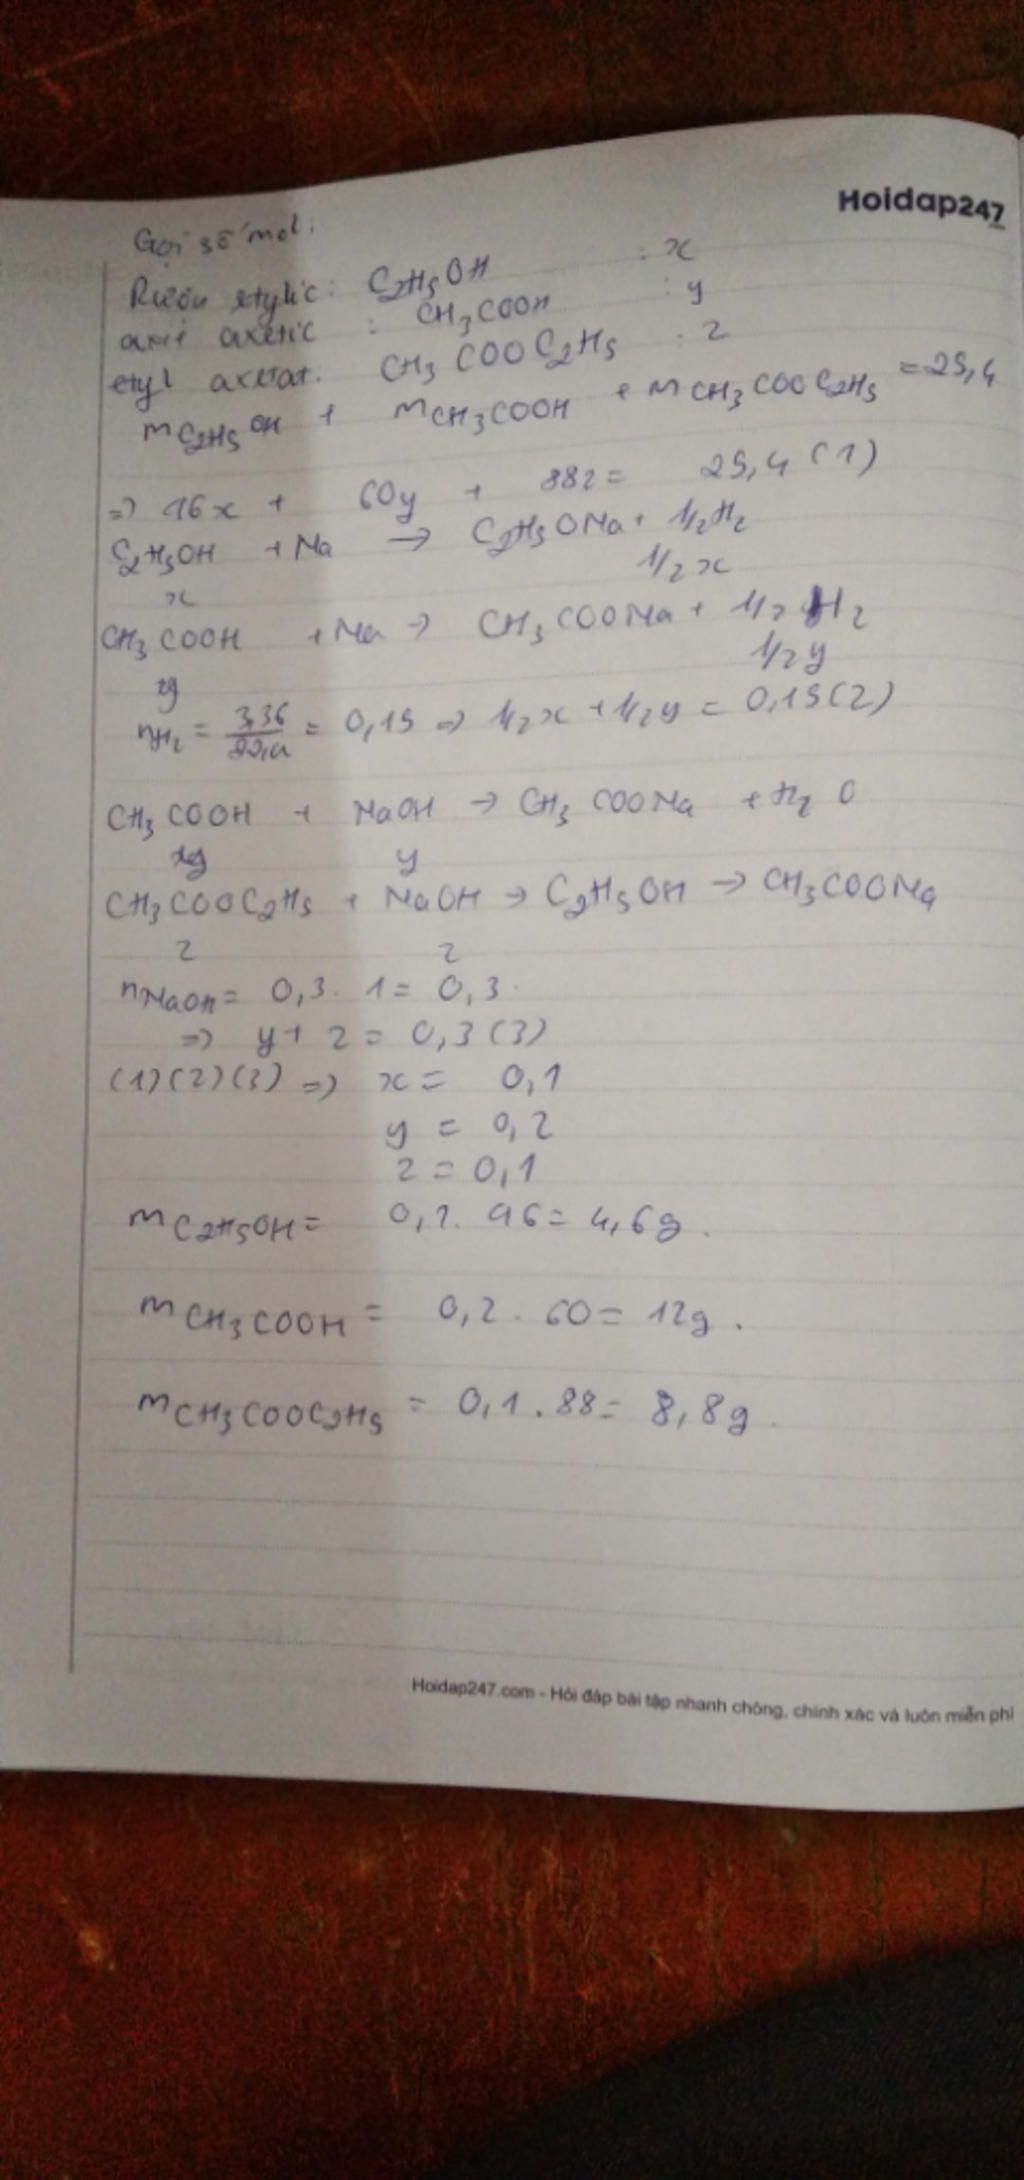 Hoidap247
Gọi số mol:
Rượu etylic: C2H5OH : x
axit axetic : CH3COOH : y
etyl axetat. CH3COOC2H5 : z
mC2H5OH + mCH3COOH + mCH3COOC2H5 = 25,4
=> 46x + 60y + 88z = 25,4 (1)
C2H5OH + Na → C2H5ONa + 1/2H2
x 1/2x
CH3COOH + Na → CH3COONa + 1/2H2
y 1/2y
nH2 = 3,36/22,4 = 0,15 => 1/2x + 1/2y = 0,15(2)
CH3COOH + NaOH → CH3COONa + H2O
y y
CH3COOC2H5 + NaOH → C2H5OH → CH3COONa
z z
nNaOH = 0,3. 1 = 0,3.
=> y + z = 0,3 (3)
(1)(2)(3) => x = 0,1
y = 0,2
z = 0,1
mC2H5OH = 0,1. 46 = 4,6g.
mCH3COOH = 0,2. 60 = 12g.
mCH3COOC2H5 = 0,1.88 = 8,8g.
Hoidap247.com - Hỏi đáp bài tập nhanh chóng, chính xác và luôn miễn phí